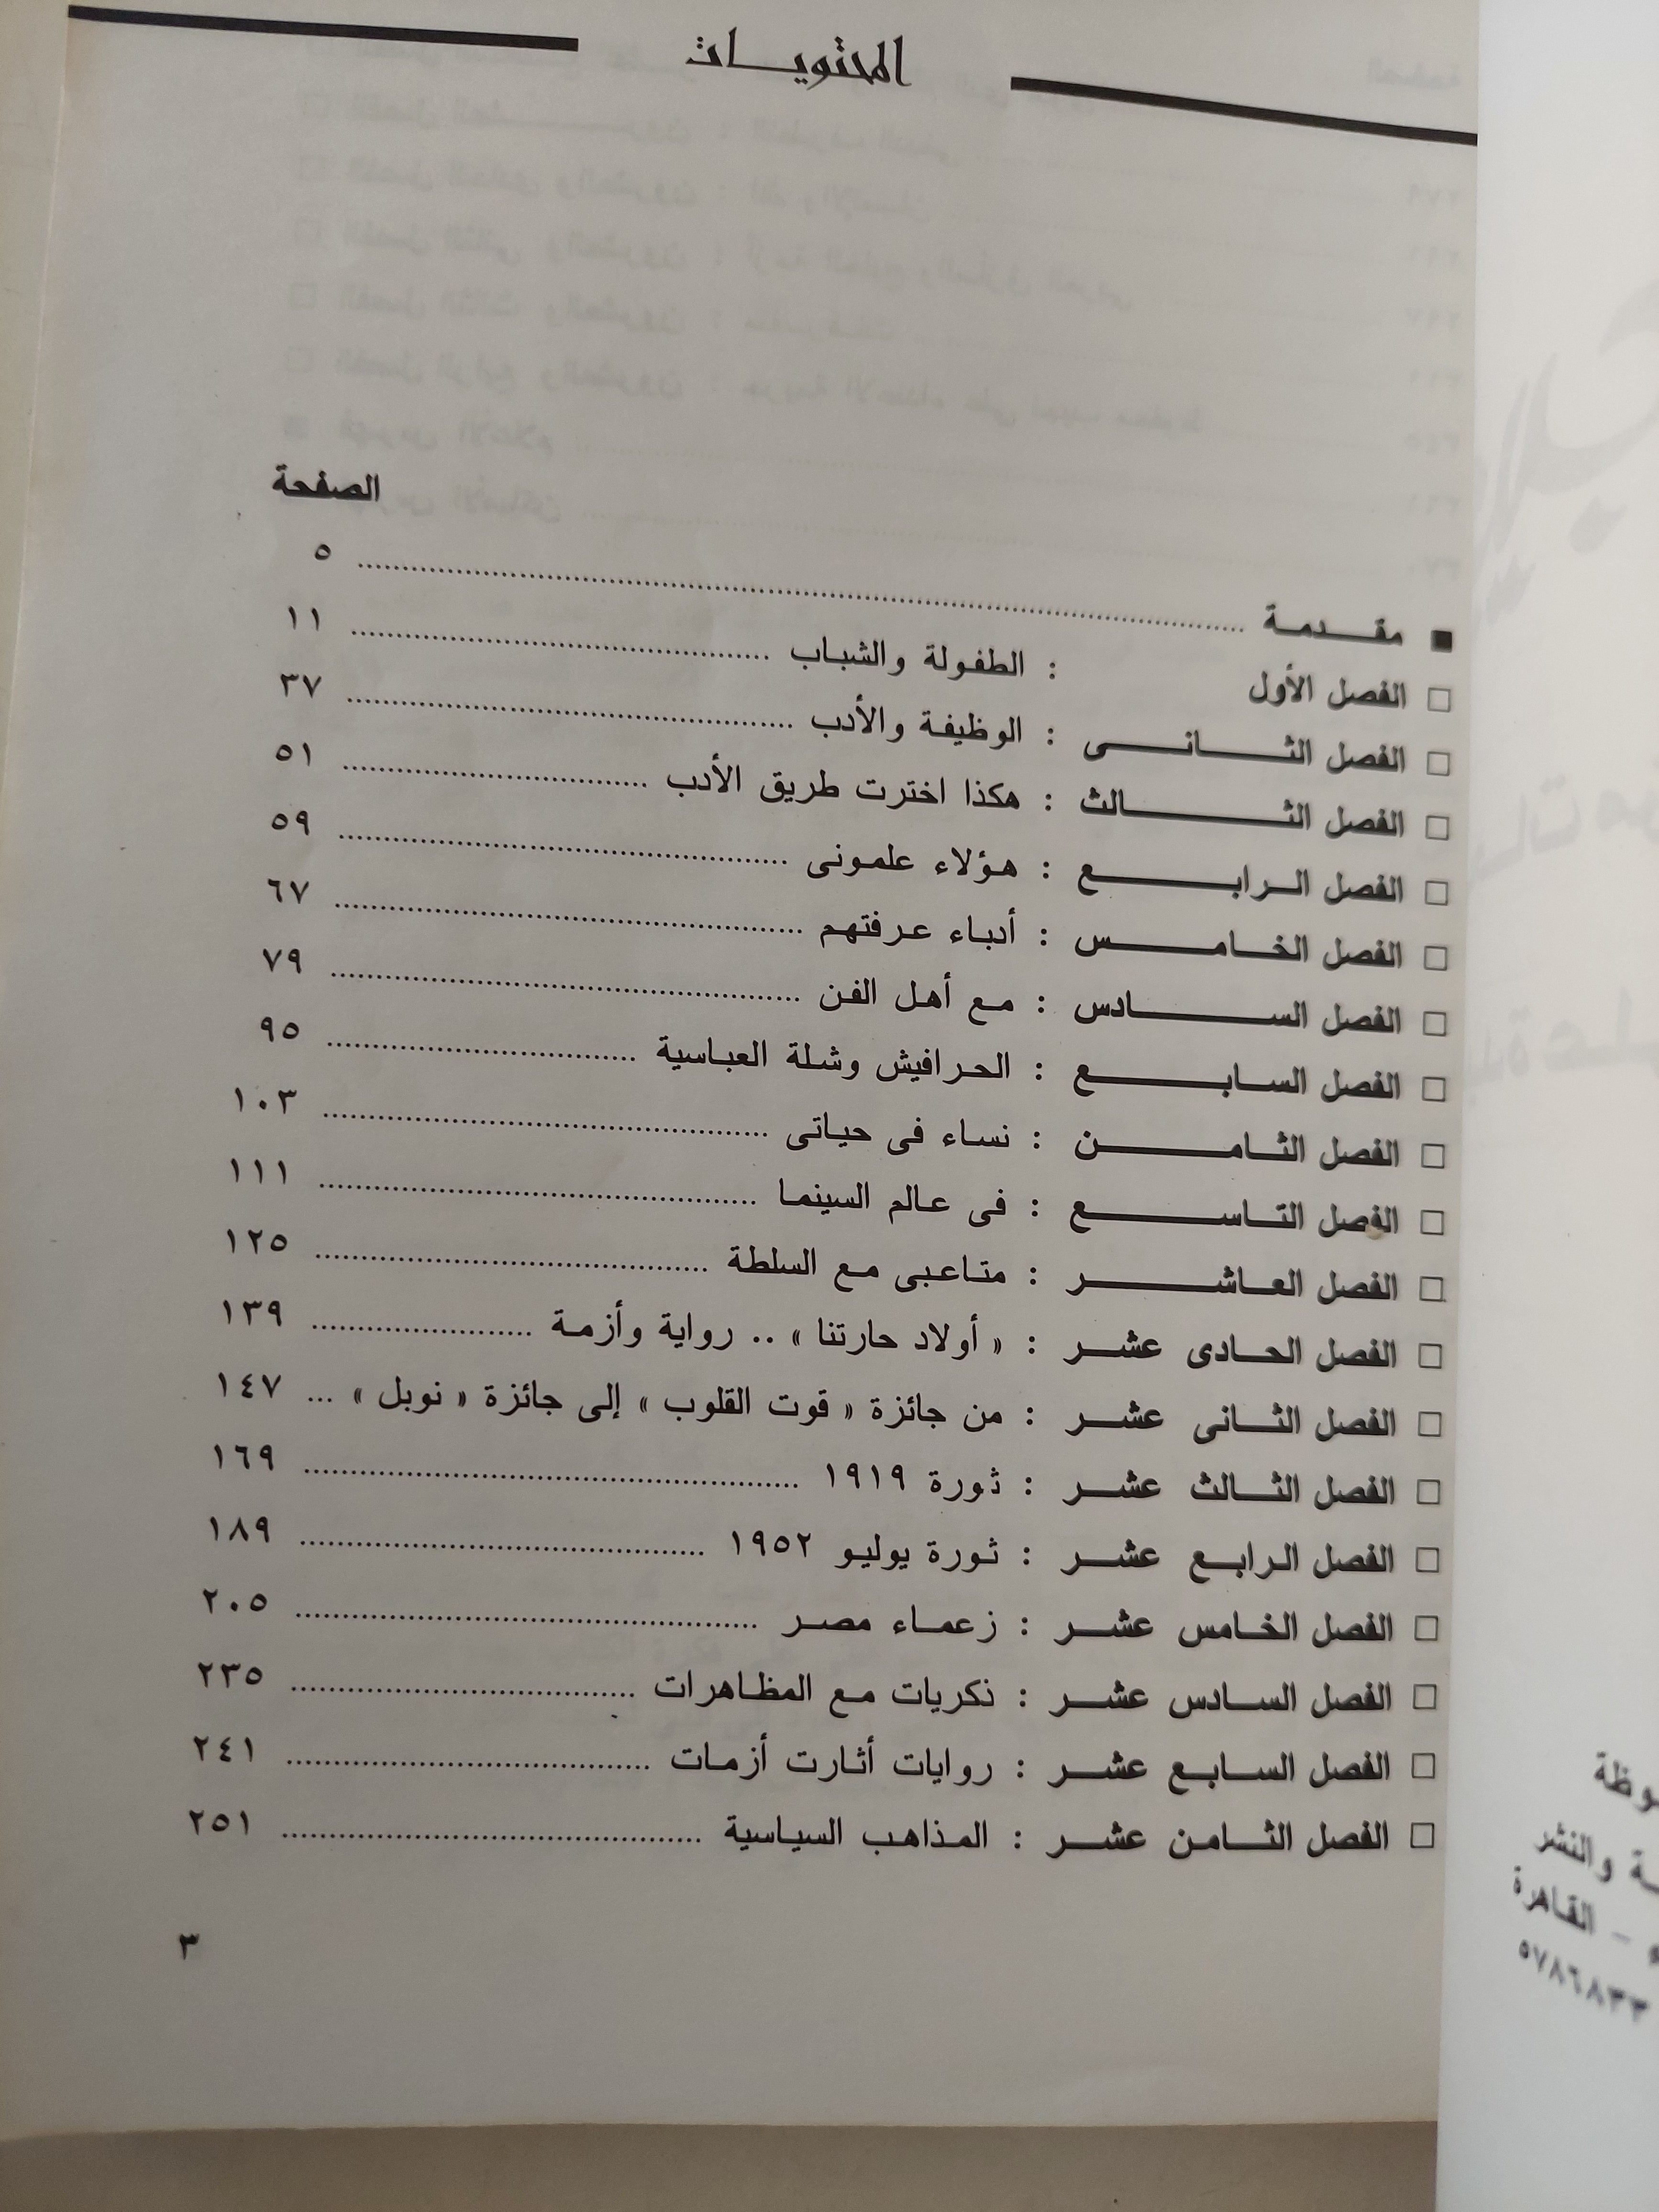 المحتويات
الصفحة
■ مقدمة ........ ٥
□ الفصل الأول : الطفولة والشباب ........ ١١
□ الفصل الثانى : الوظيفة والأدب ........ ٣٧
□ الفصل الثالث : هكذا اخترت طريق الأدب ........ ٥١
□ الفصل الرابع : هؤلاء علمونى ........ ٥٩
□ الفصل الخامس : أدباء عرفتهم ........ ٦٧
□ الفصل السادس : مع أهل الفن ........ ٧٩
□ الفصل السابع : الحرافيش وشلة العباسية ........ ٩٥
□ الفصل الثامن : نساء فى حياتى ........ ١٠٣
□ الفصل التاسع : فى عالم السينما ........ ١١١
□ الفصل العاشر : متاعبى مع السلطة ........ ١٢٥
□ الفصل الحادى عشر : « أولاد حارتنا » .. رواية وأزمة ........ ١٣٩
□ الفصل الثانى عشر : من جائزة « قوت القلوب » إلى جائزة « نوبل » ... ١٤٧
□ الفصل الثالث عشر : ثورة ١٩١٩ ........ ١٦٩
□ الفصل الرابع عشر : ثورة يوليو ١٩٥٢ ........ ١٨٩
□ الفصل الخامس عشر : زعماء مصر ........ ٢٠٥
□ الفصل السادس عشر : ذكريات مع المظاهرات ........ ٢٣٥
□ الفصل السابع عشر : روايات أثارت أزمات ........ ٢٤١
□ الفصل الثامن عشر : المذاهب السياسية ........ ٢٥١
٣
والنشر
– القاهرة
٥٧٨٦٨٣٣